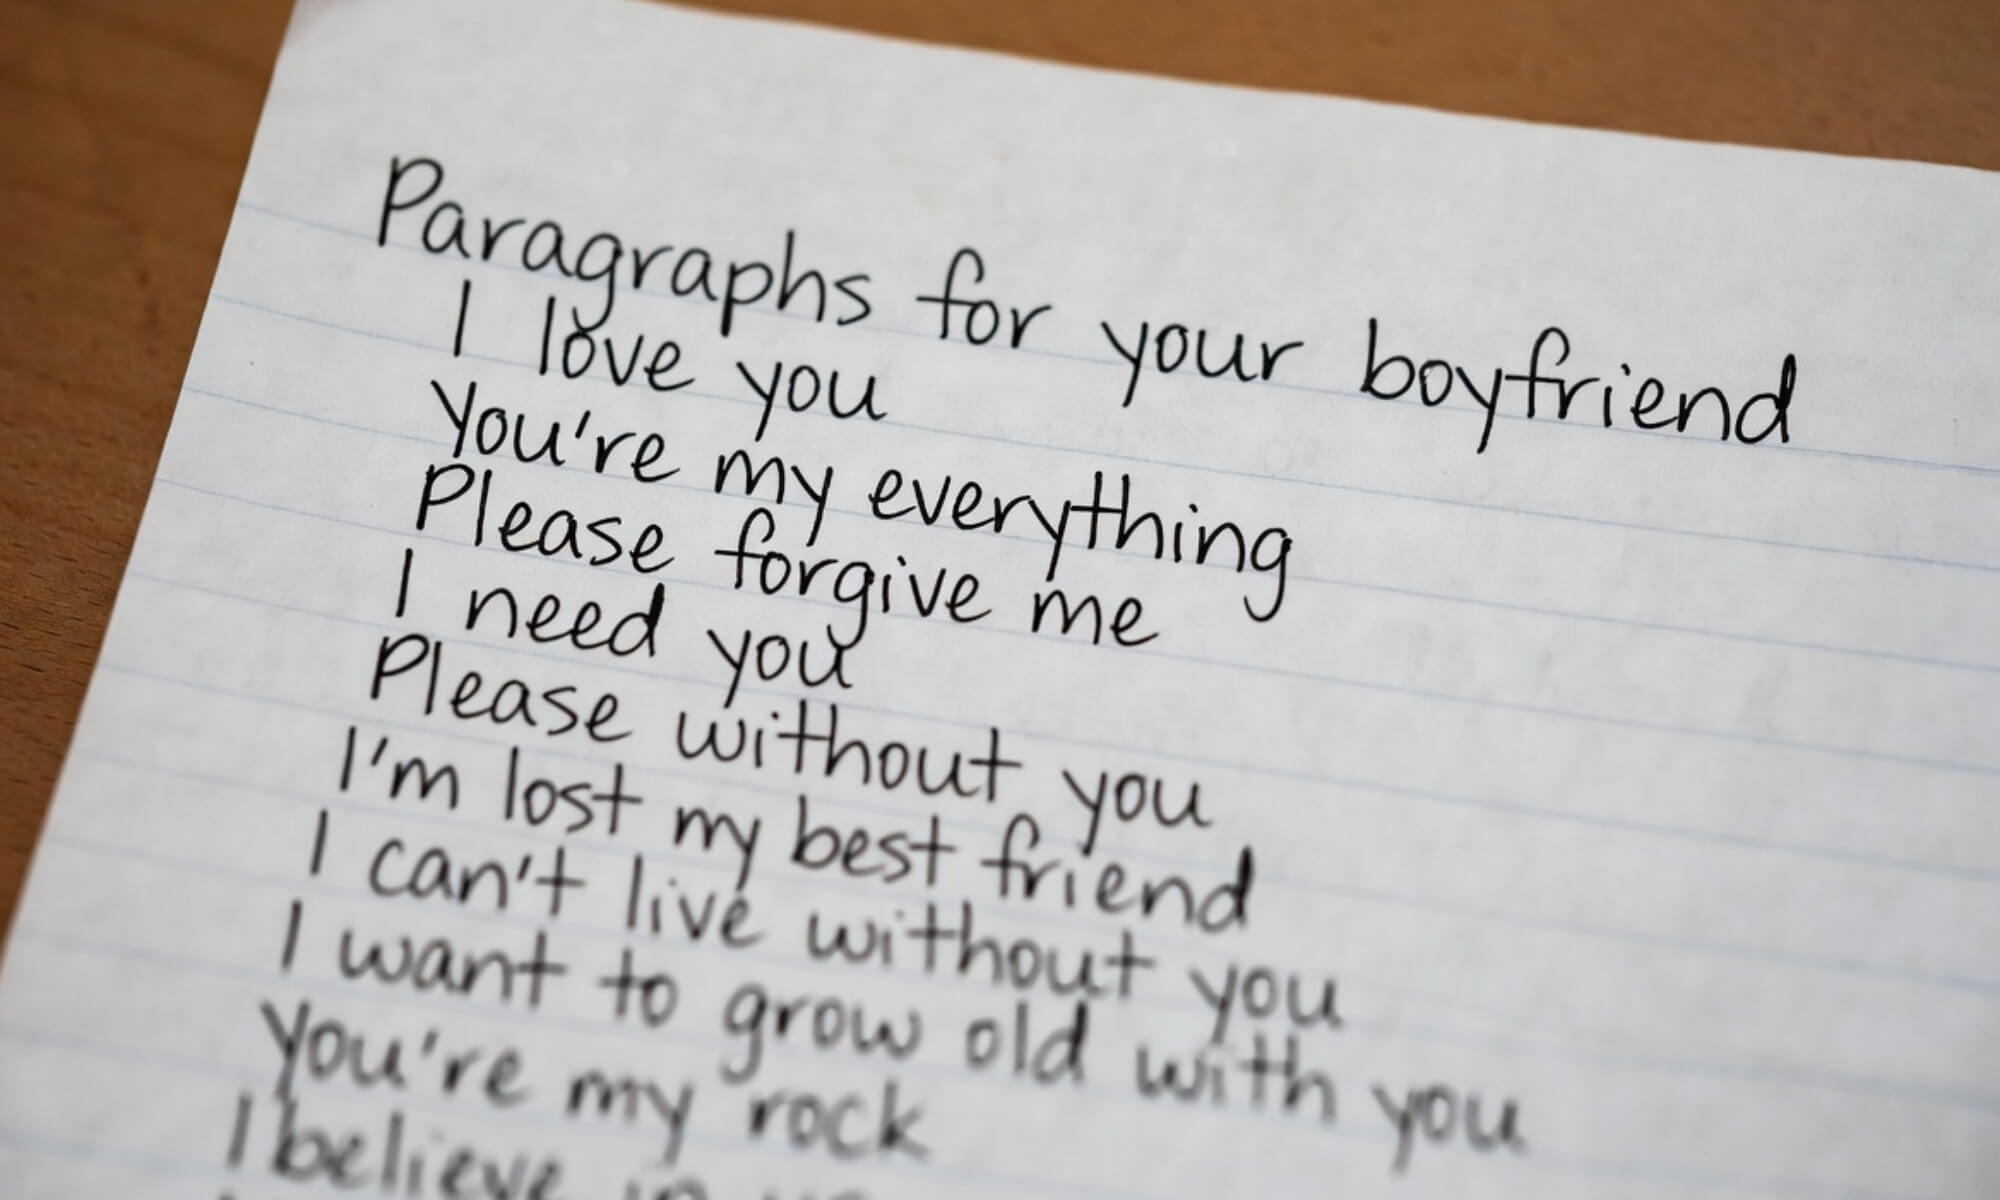 Paragraphs for your boyfriend
I love you
You're my everything
Please forgive me
I need you
Please without you
I'm lost my best friend
I can't live without you
I want to grow old with you
You're my rock
I believe in